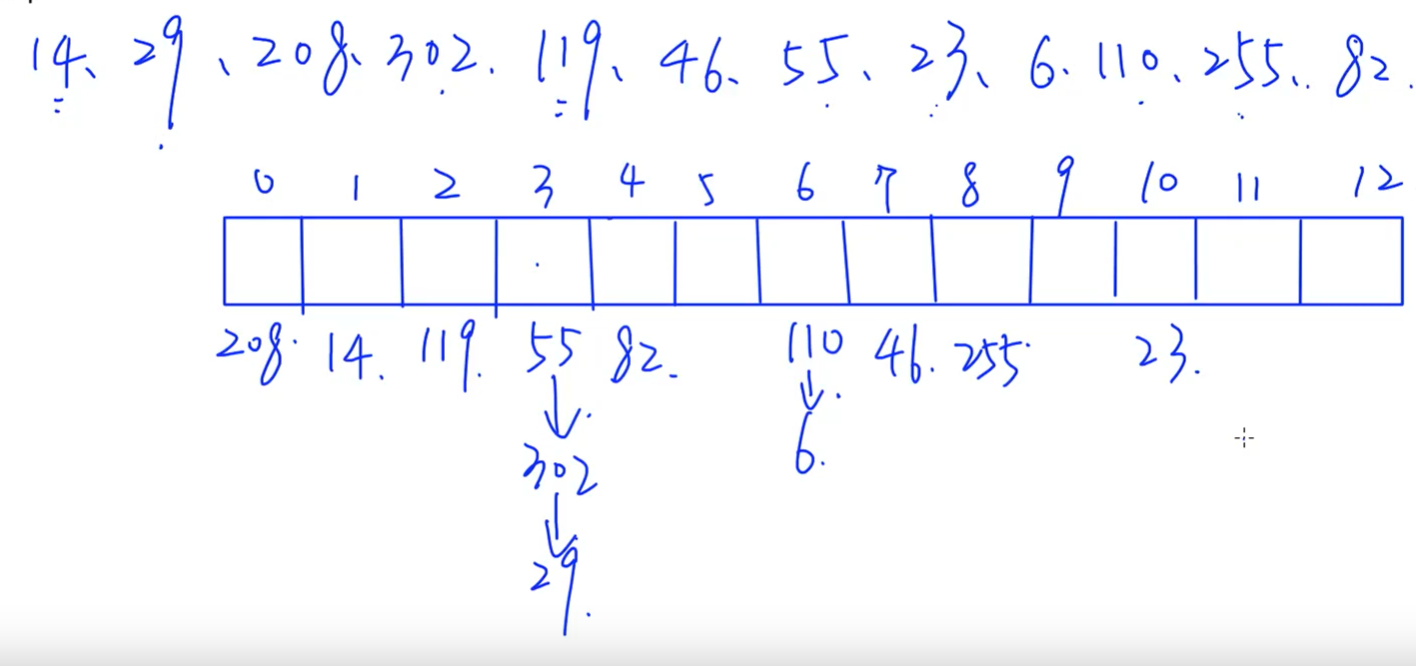 14、29、208、302.119、46、55、23、6、110、255、82.
0 1 2 3 4 5 6 7 8 9 10 11 12
208. 14. 119. 55 82. 110 46. 255 23.
302 6.
29.